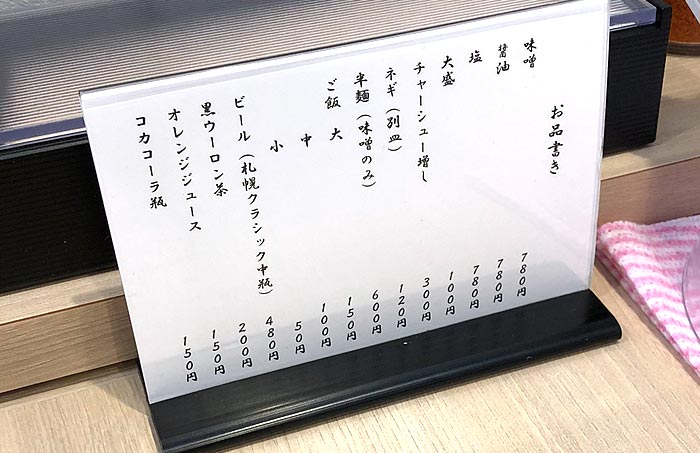 お品書き
味噌 780円
醤油 780円
塩 780円
大盛 100円
チャーシュー増し 300円
ネギ（別皿） 120円
半麺（味噌のみ） 600円
ご飯 大 150円
中 100円
小 50円
ビール（札幌クラシック中瓶） 480円
黒ウーロン茶 200円
オレンジジュース 150円
コカコーラ瓶 150円